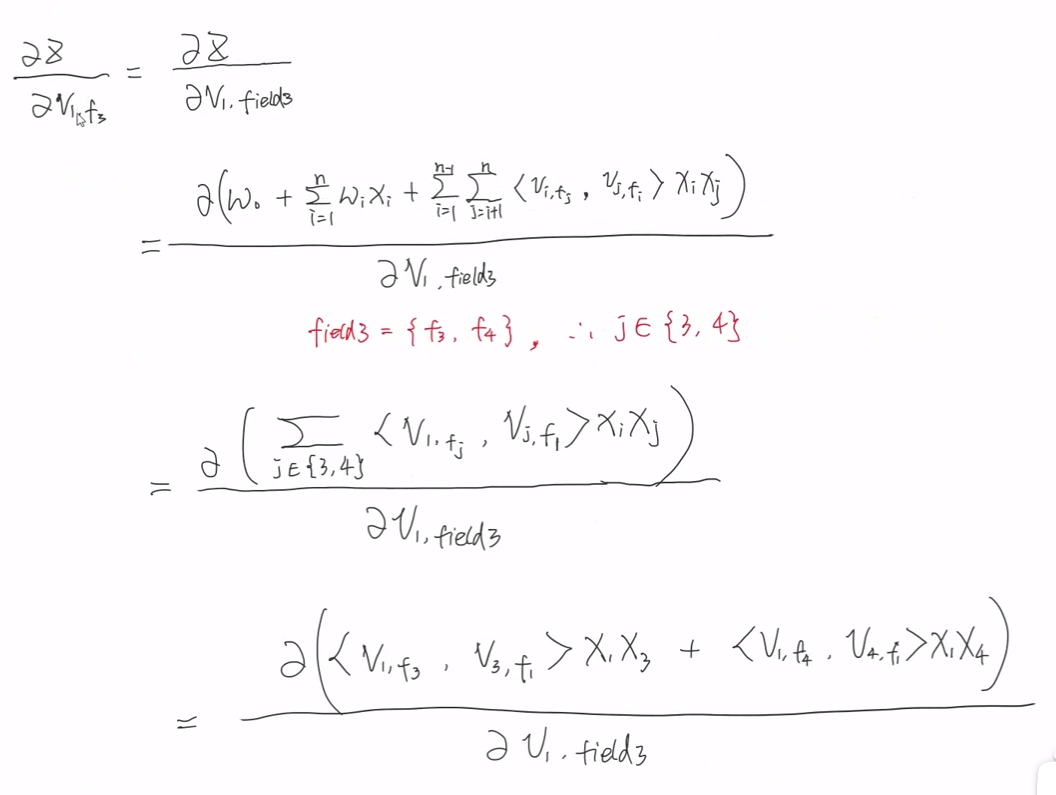 ∂z/∂V₁,f₃ = ∂z/∂V₁,field3
= ∂(w₀ + Σᵢ₌₁ⁿ wᵢxᵢ + Σᵢ₌₁ⁿ⁻¹ Σⱼ₌ᵢ₊₁ⁿ <Vᵢ,fⱼ , Vⱼ,fᵢ> xᵢxⱼ) / ∂V₁,field3
field3 = {f₃, f₄}, ∴ j∈{3, 4}
= ∂(Σ j∈{3,4} <V₁,fⱼ , Vⱼ,f₁> xᵢxⱼ) / ∂V₁,field3
= ∂(<V₁,f₃ , V₃,f₁> x₁x₃ + <V₁,f₄ , V₄,f₁> x₁x₄) / ∂V₁,field3